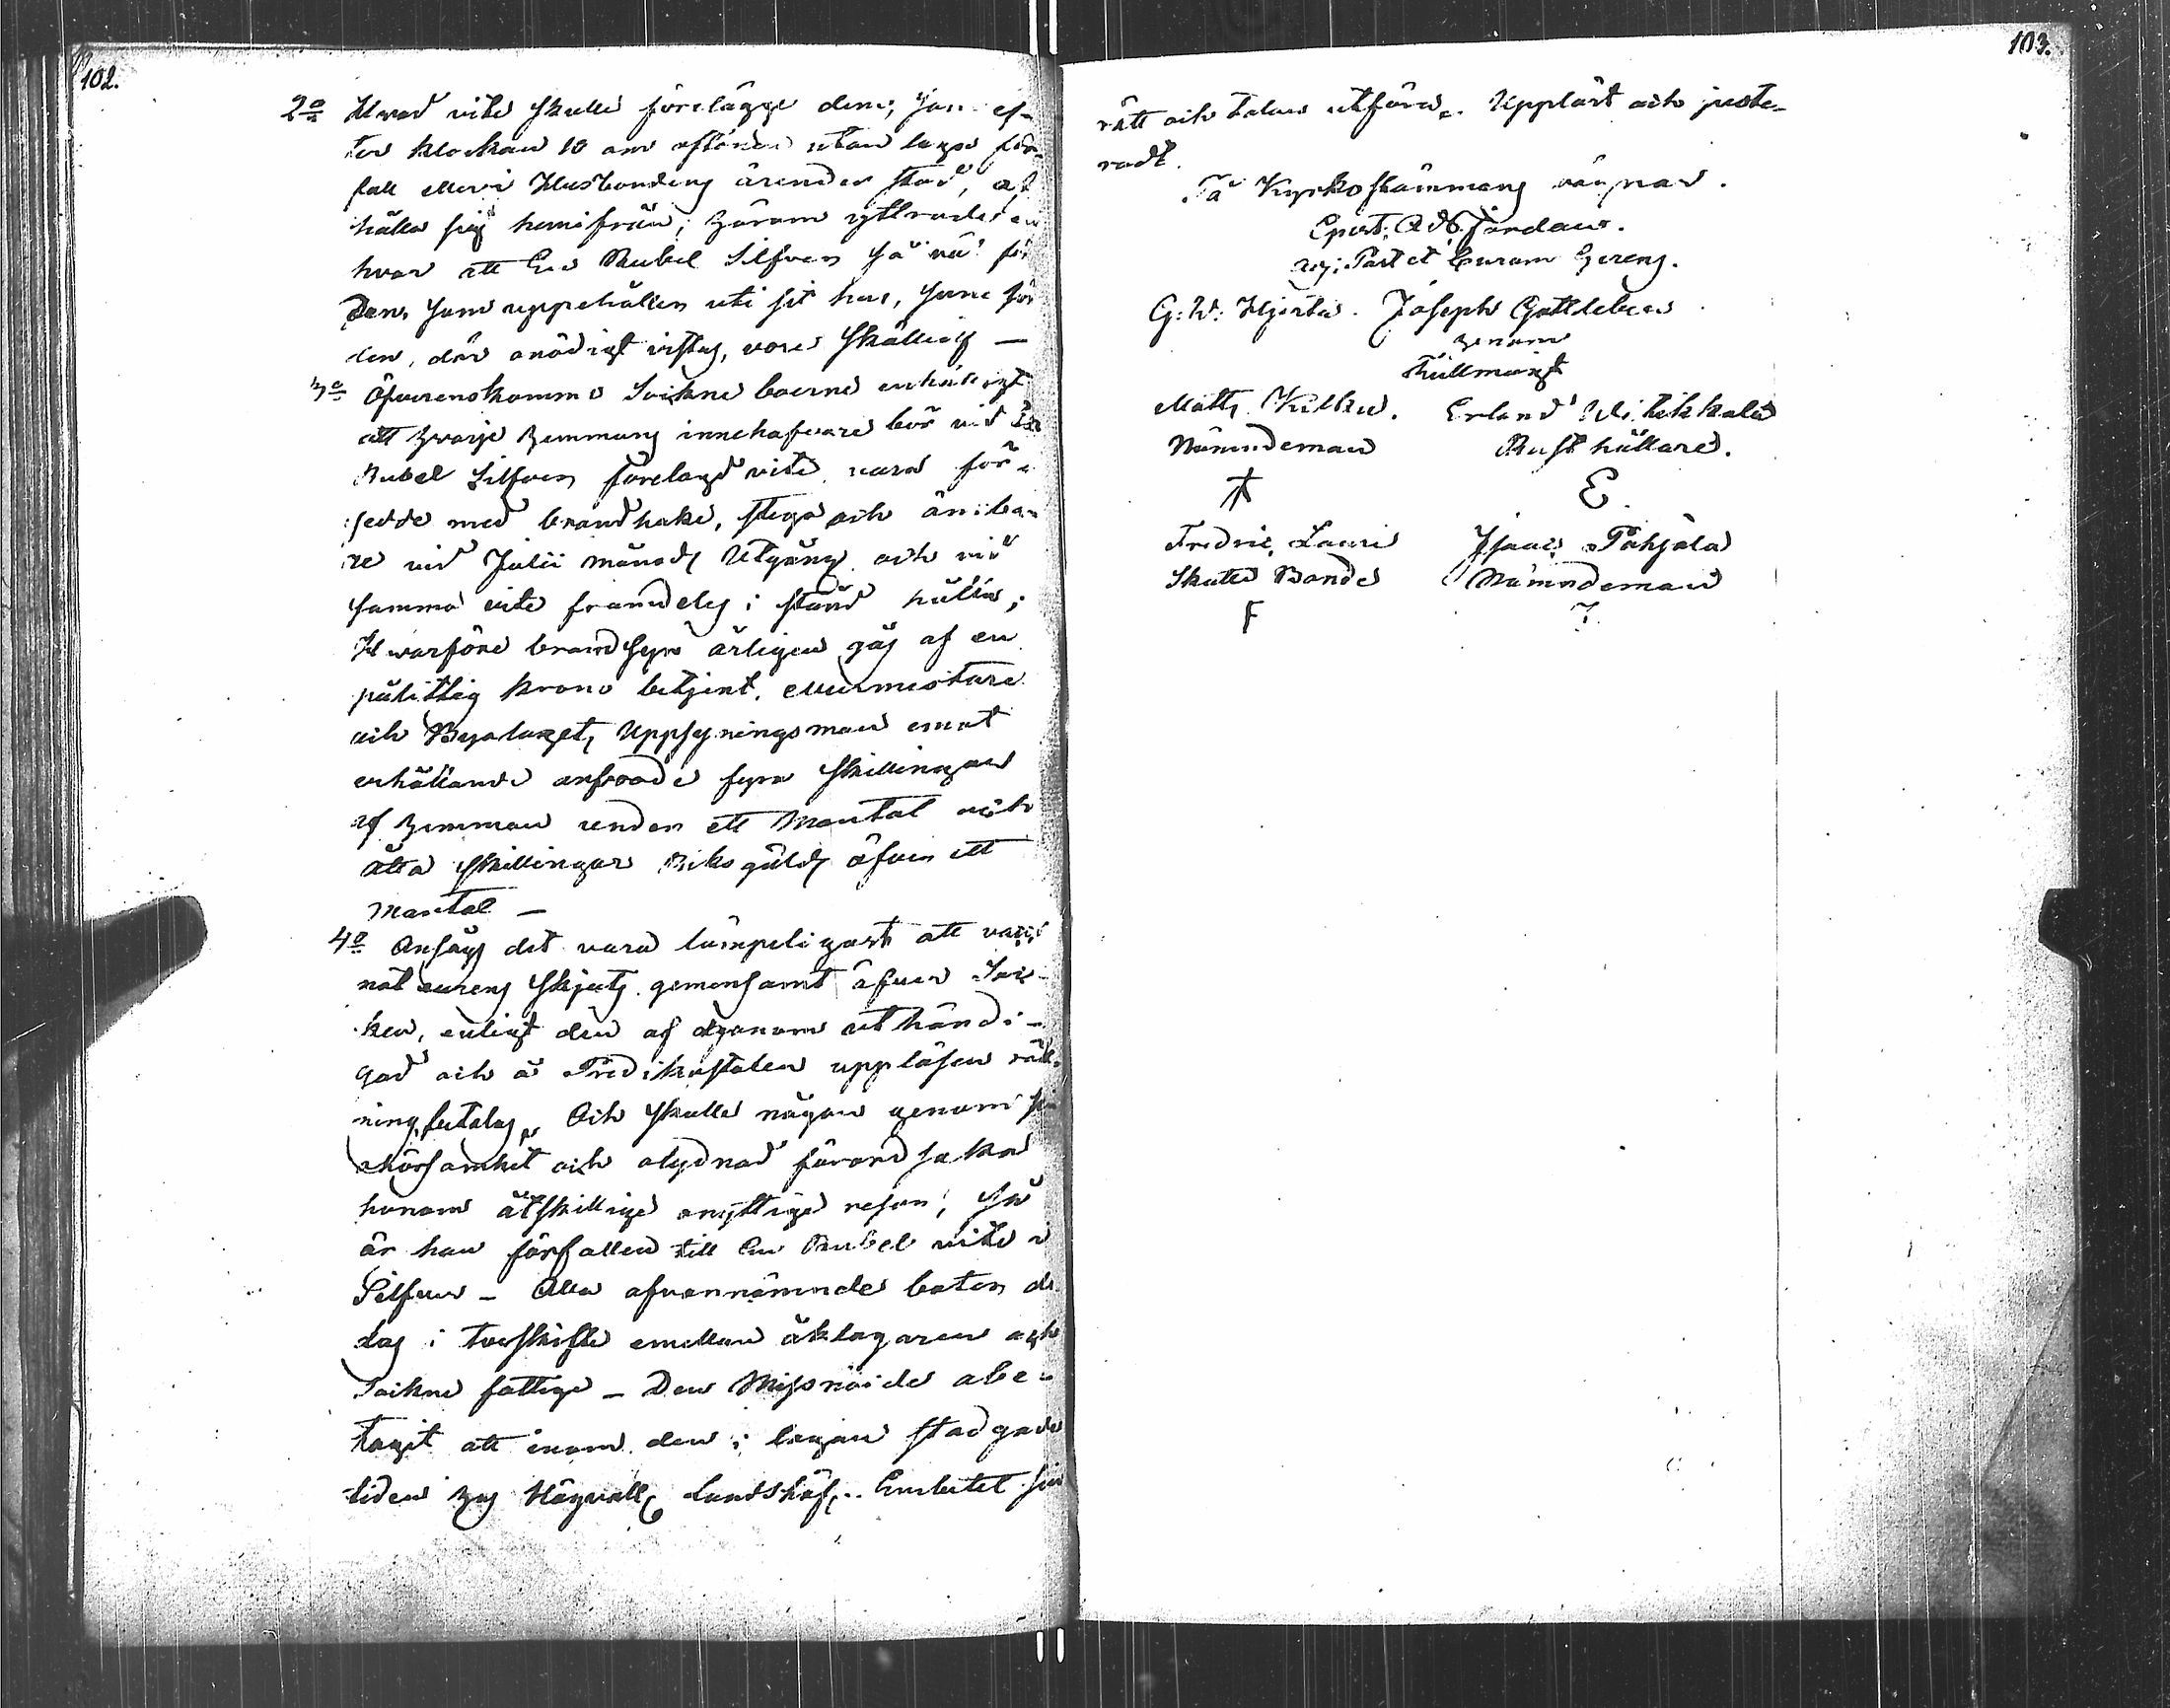 102.
2o Hvad vite skulle förelägge dem, som ef-
ter klockan 10 om aftonen utan laga för-
fall eller i Husbondens ärender stad,
hålla sig hemifrån; härom yttrade en
hvar att En Rubel Silfver så väl för
den, som uppehållen uti sit hus, som för
den, där onödigt vistas, vore skälligt —
3o Öfverenskommo Sokne boerne enhälligt
att hvarje hemmans innehafvare bör vid En
Rubel Silfvers förelagd vite vara för-
sedde med brandhake, stega och ämba-
re vid Julii månads Utgång och vid
samma vite framdeles i stånd hålla;
Hvarföre brandsyn årligen gås af en
pålitlig krono betjent, Murmästare
och Byalagets Uppsyningsman emot
erhållande arfvode fyra skillingar
af hemman under ett Mantal och
åtta skillingar Riksgälds öfver ett
Mantal —
4o Ansågs det vara lämpeligast att
skjuts gemensamt öfver Sok-
ken, enligt den af honom uthändi-
gad och å Predikostolen uppläsen
Och skulle någon genom
ohörsamhet och olydnad förorsaka
honom åtskillige onyttige resor, så
är han förfallen till En Rubel vite i
Silfver – Alla ofvannämnde böter de-
las i tveskifte emellan åklagaren och
Sokne fattige – Den Missnöide obe-
tagit att inom den i lagen stadgade
tiden hos Högvälle Landshöf.. Embetet sin
103.
rätt och talan utföra. Uppläst och juste-
radt.
På Kyrkostämmans vägnar.
Jordan.
Past et Curam Gerens.
G: W: Hjerta. Joseph Gottleben
genom
fullmägt
Matts Kilkku. Erland
Nämndeman Rusthållare.
E.
Fredric Lauri Isaac Påhjala
Skatte Bonde Nämndeman
F I.